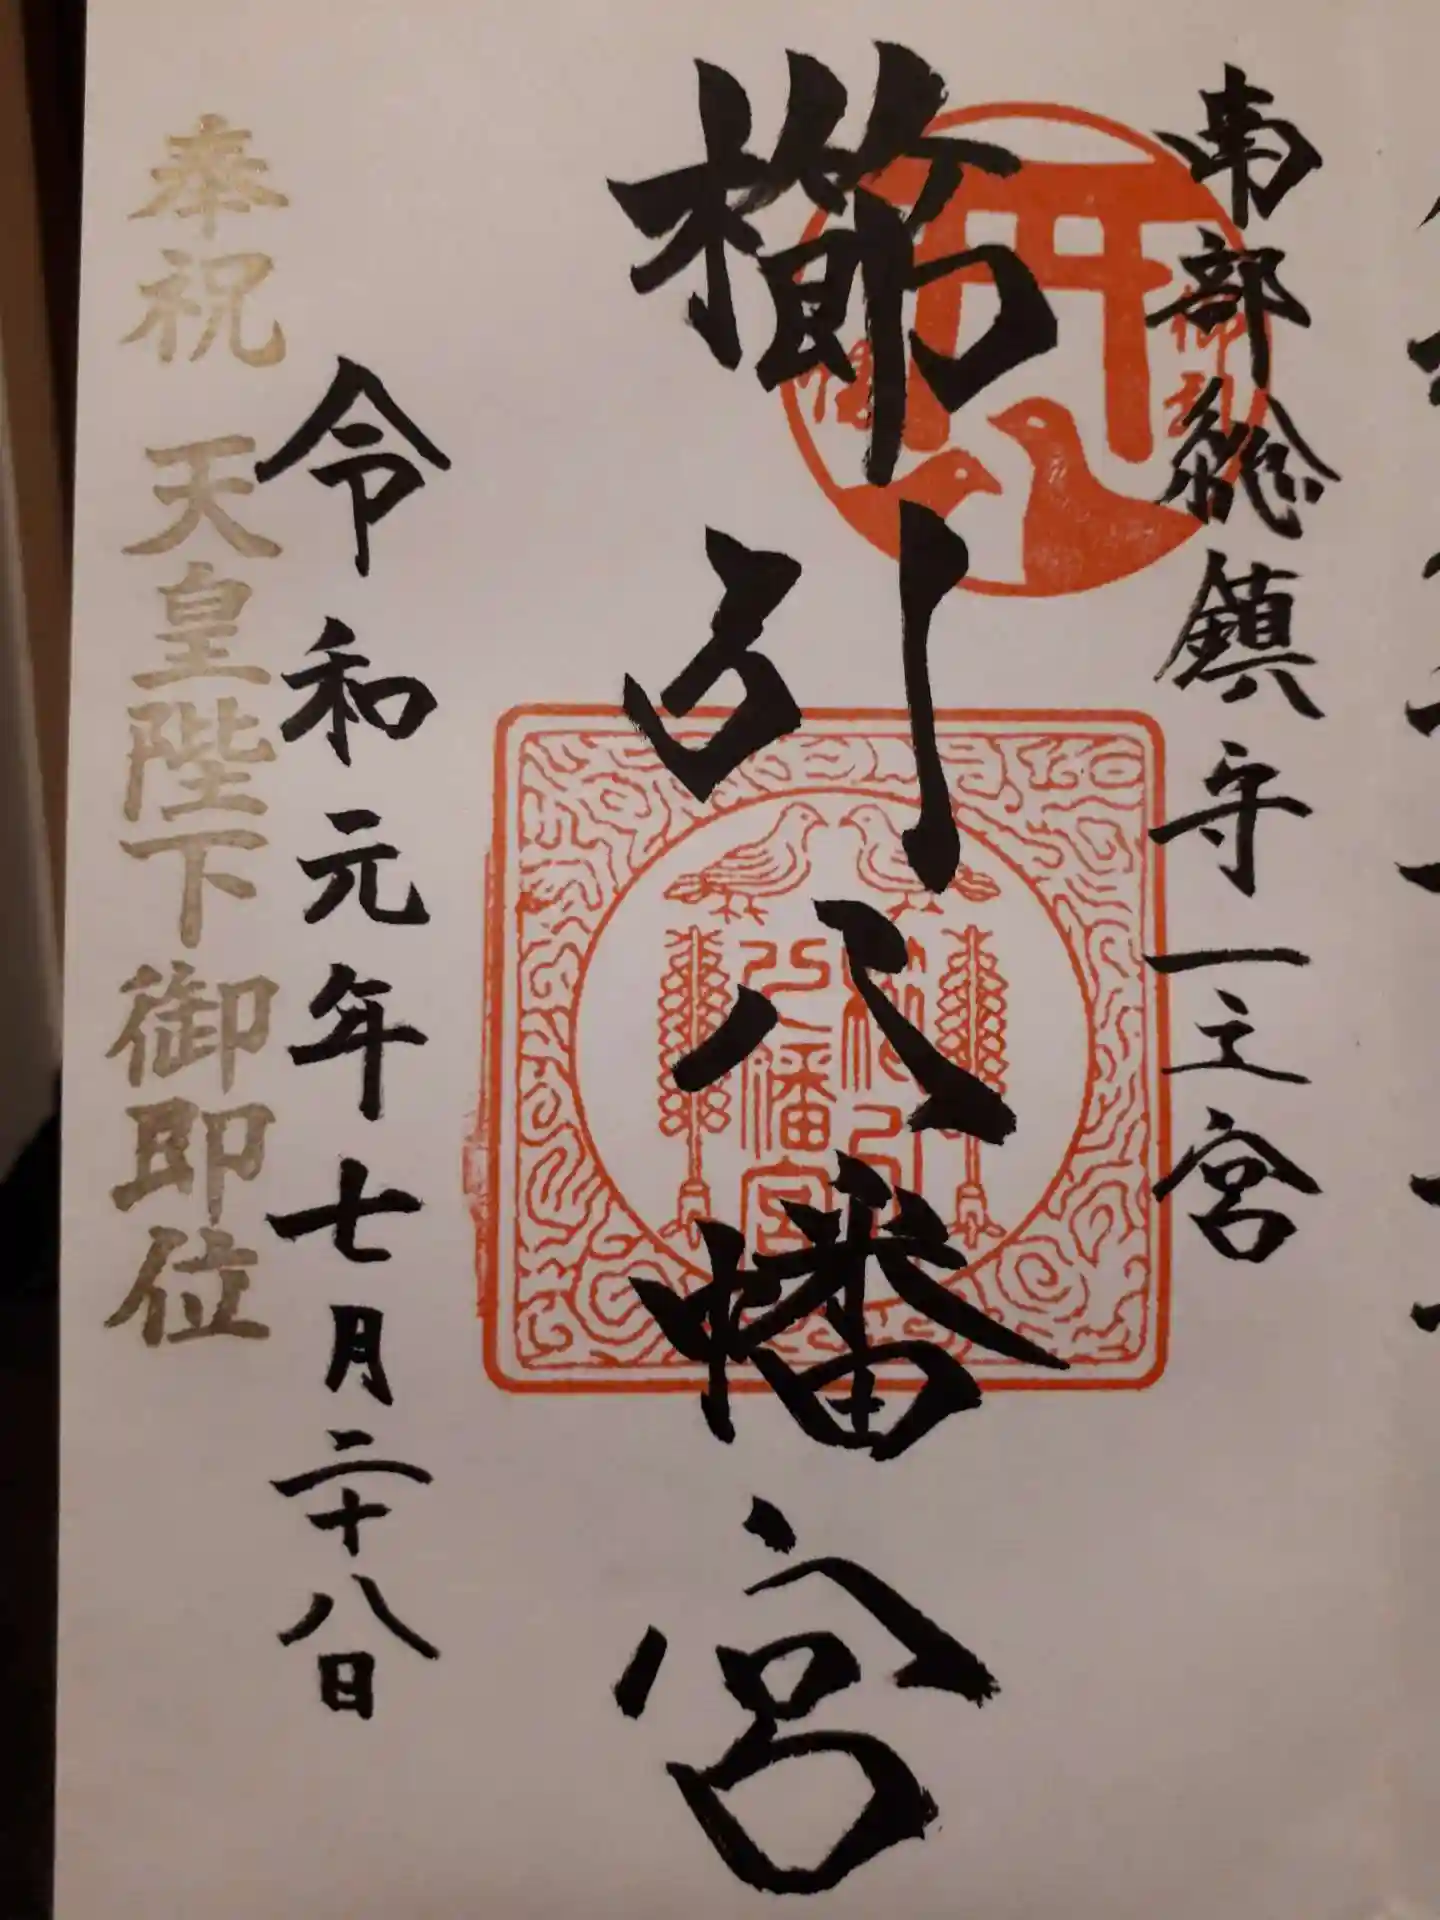 南部総鎮守一之宮
櫛引八幡宮
令和元年七月二十八日
奉祝 天皇陛下御即位
櫛引
八幡宮